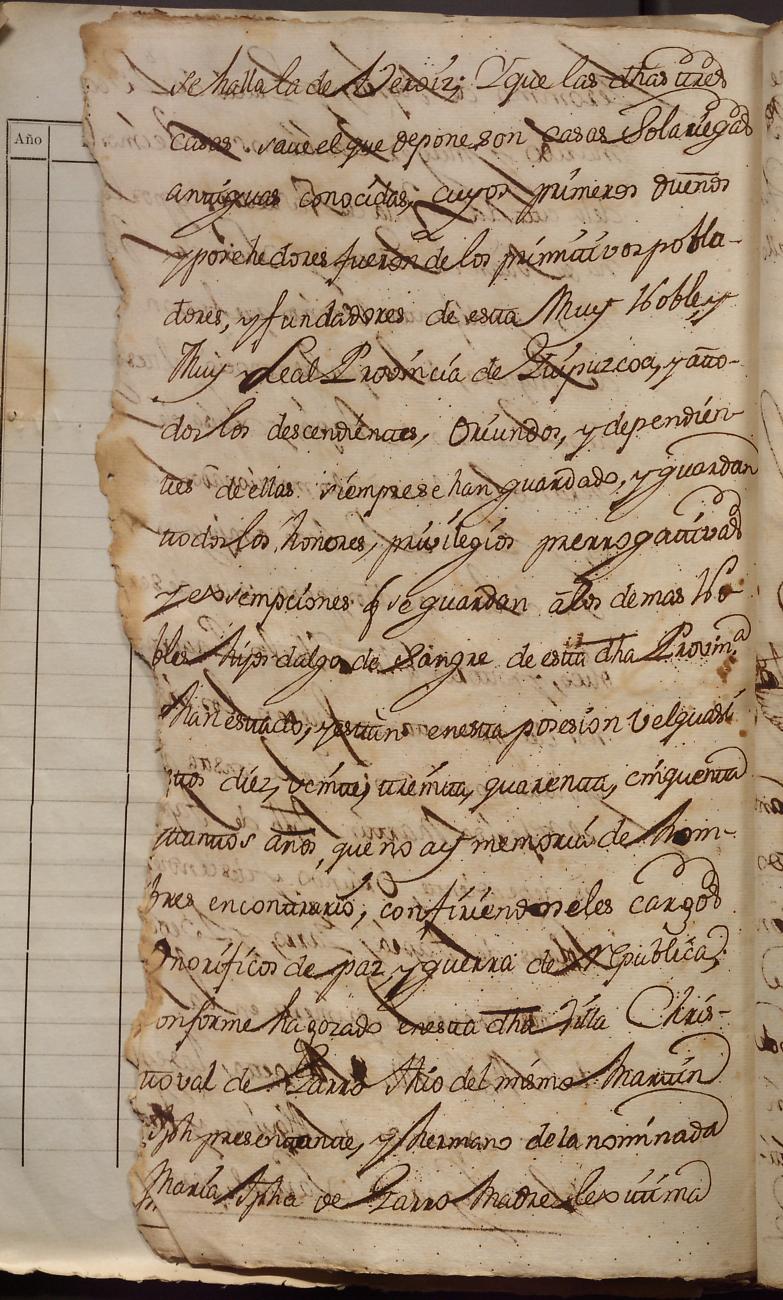 Año
se halla la de Veroiz; Y que las dhas tres
casas save el que depone, son casas Solariegas
antiguas conocidas, cuyos primeros dueños
y porehedores fueron de los primitivos pobla-
dores, y fundadores de esta Muy Noble, y
Muy Leal Provincia de Guipuzcoa, y a tto-
dos los descendientes, Oriundos, y dependien-
tes de ellas siempre se han guardado, y guardan
todos los honores, privilegios prerrogativas
y exsempciones q se guardan a los demas No-
bles hijos dalgo de Sangre de esta dha Provinª
han estado, y están en esta posesion vel quasi
tos diez, veinte, treinta, quarenta, cinquenta
ttantos años, que no ay memoria de hom-
bres en contrario, confiriendoseles cargos
Onorificos de paz, y guerra de Republica,
onforme ha gozado en esta dha Villa Chris-
toval de Garro thio del mismo Martin
Jph presentante, y hermano de la nominada
Maria Jpha de Garro Madre lexitima